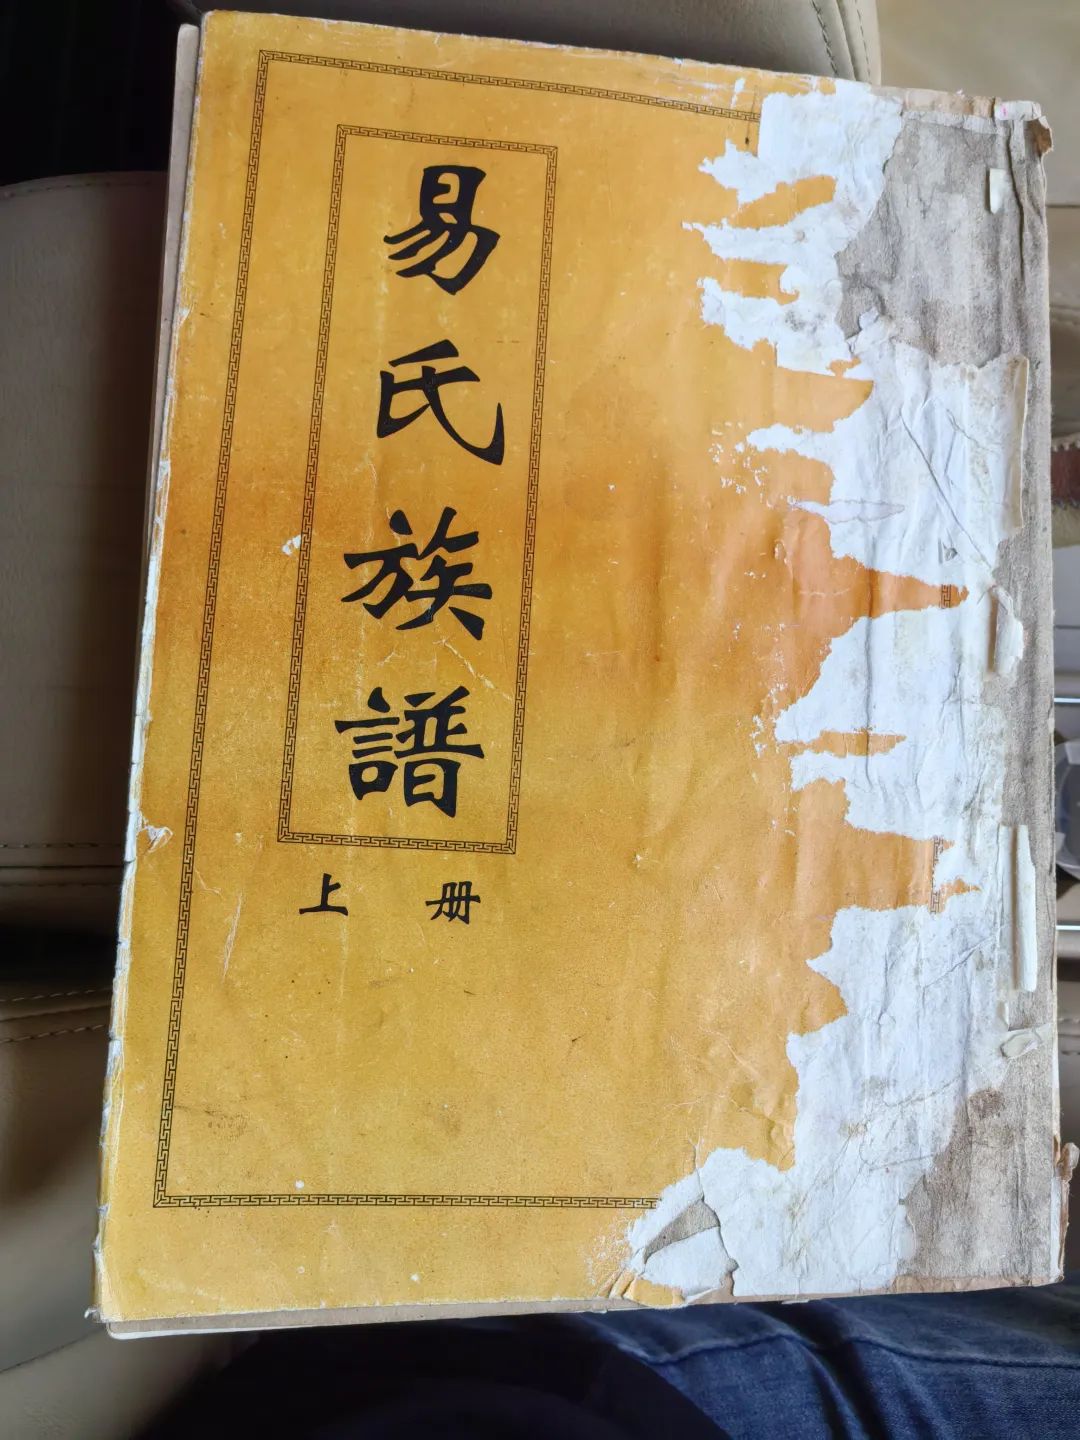 易氏族譜
上册